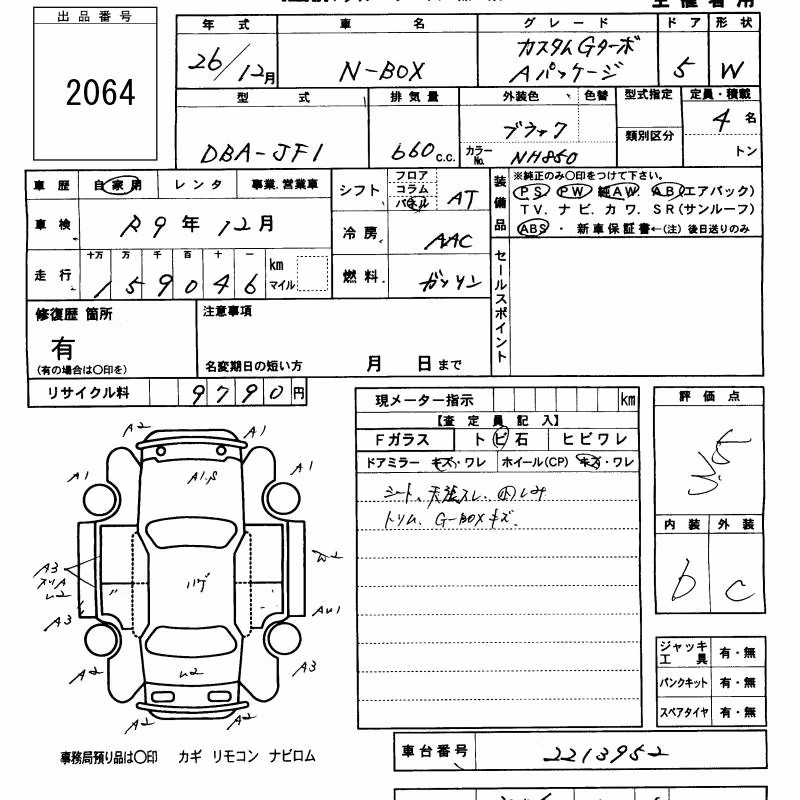 出品番号
2064
年式 車名 グレード ドア 形状
26/12月 N-BOX カスタムGターボ Aパッケージ 5 W
型式 排気量 外装色 色替 型式指定 定員・積載
DBA-JF1 660c.c. ブラック 類別区分 4名
カラーNo. NH850 トン
車歴 自家用 レンタ 事業.営業車
シフト フロア コラム パネル AT
装備品 ※純正のみ○印をつけて下さい。
PS PW 純AW. AB(エアバック)
TV. ナビ. カワ. SR(サンルーフ)
ABS ・ 新車保証書←(注) 後日送りのみ
車検 R9年12月
冷房 AAC
走行 十万 万 千 百 十 一
159046 km マイル
燃料 ガソリン
セールスポイント
修復歴 箇所
有
(有の場合は○印を)
注意事項
名変期日の短い方 月 日まで
リサイクル料 9790円
現メーター指示 km
【査定員記入】
Fガラス トビ石 ヒビワレ
ドアミラー キズ・ワレ ホイール(CP) キズ・ワレ
シート、天張スレ、内しみ
トリム、G-BOXキズ.
評価点
3.5
内装 外装
b c
A2 A1
A1 A1.S A1
A3 W2
A3 AU1
A2 A3
A2 A2
ジャッキ工具 有・無
パンクキット 有・無
スペアタイヤ 有・無
事務局預り品は○印 カギ リモコン ナビロム
車台番号 2213952